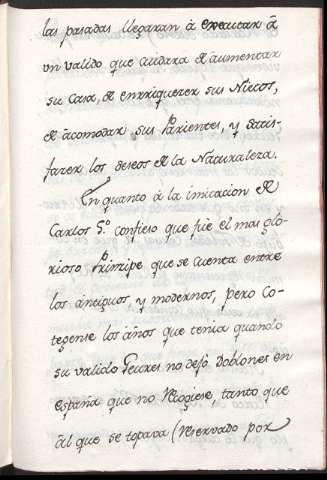 las pasadas llegaran à executar à
vn valido que cuidara de aumentar
su casa, de enrriquezer sus Nietos,
de acomodar sus Parientes, y satis-
fazer los deseos de la Naturaleza.
En quanto à la imitacion de
Carlos 5º confieso que fue el mas glo-
rioso Prinzipe que se cuenta entre
los antiguos, y modernos, pero Co-
tegense los años que tenia quando
su valido Geures no dejò Doblones en
españa que no Recogiese, tanto que
àl que se topava (Reservado por